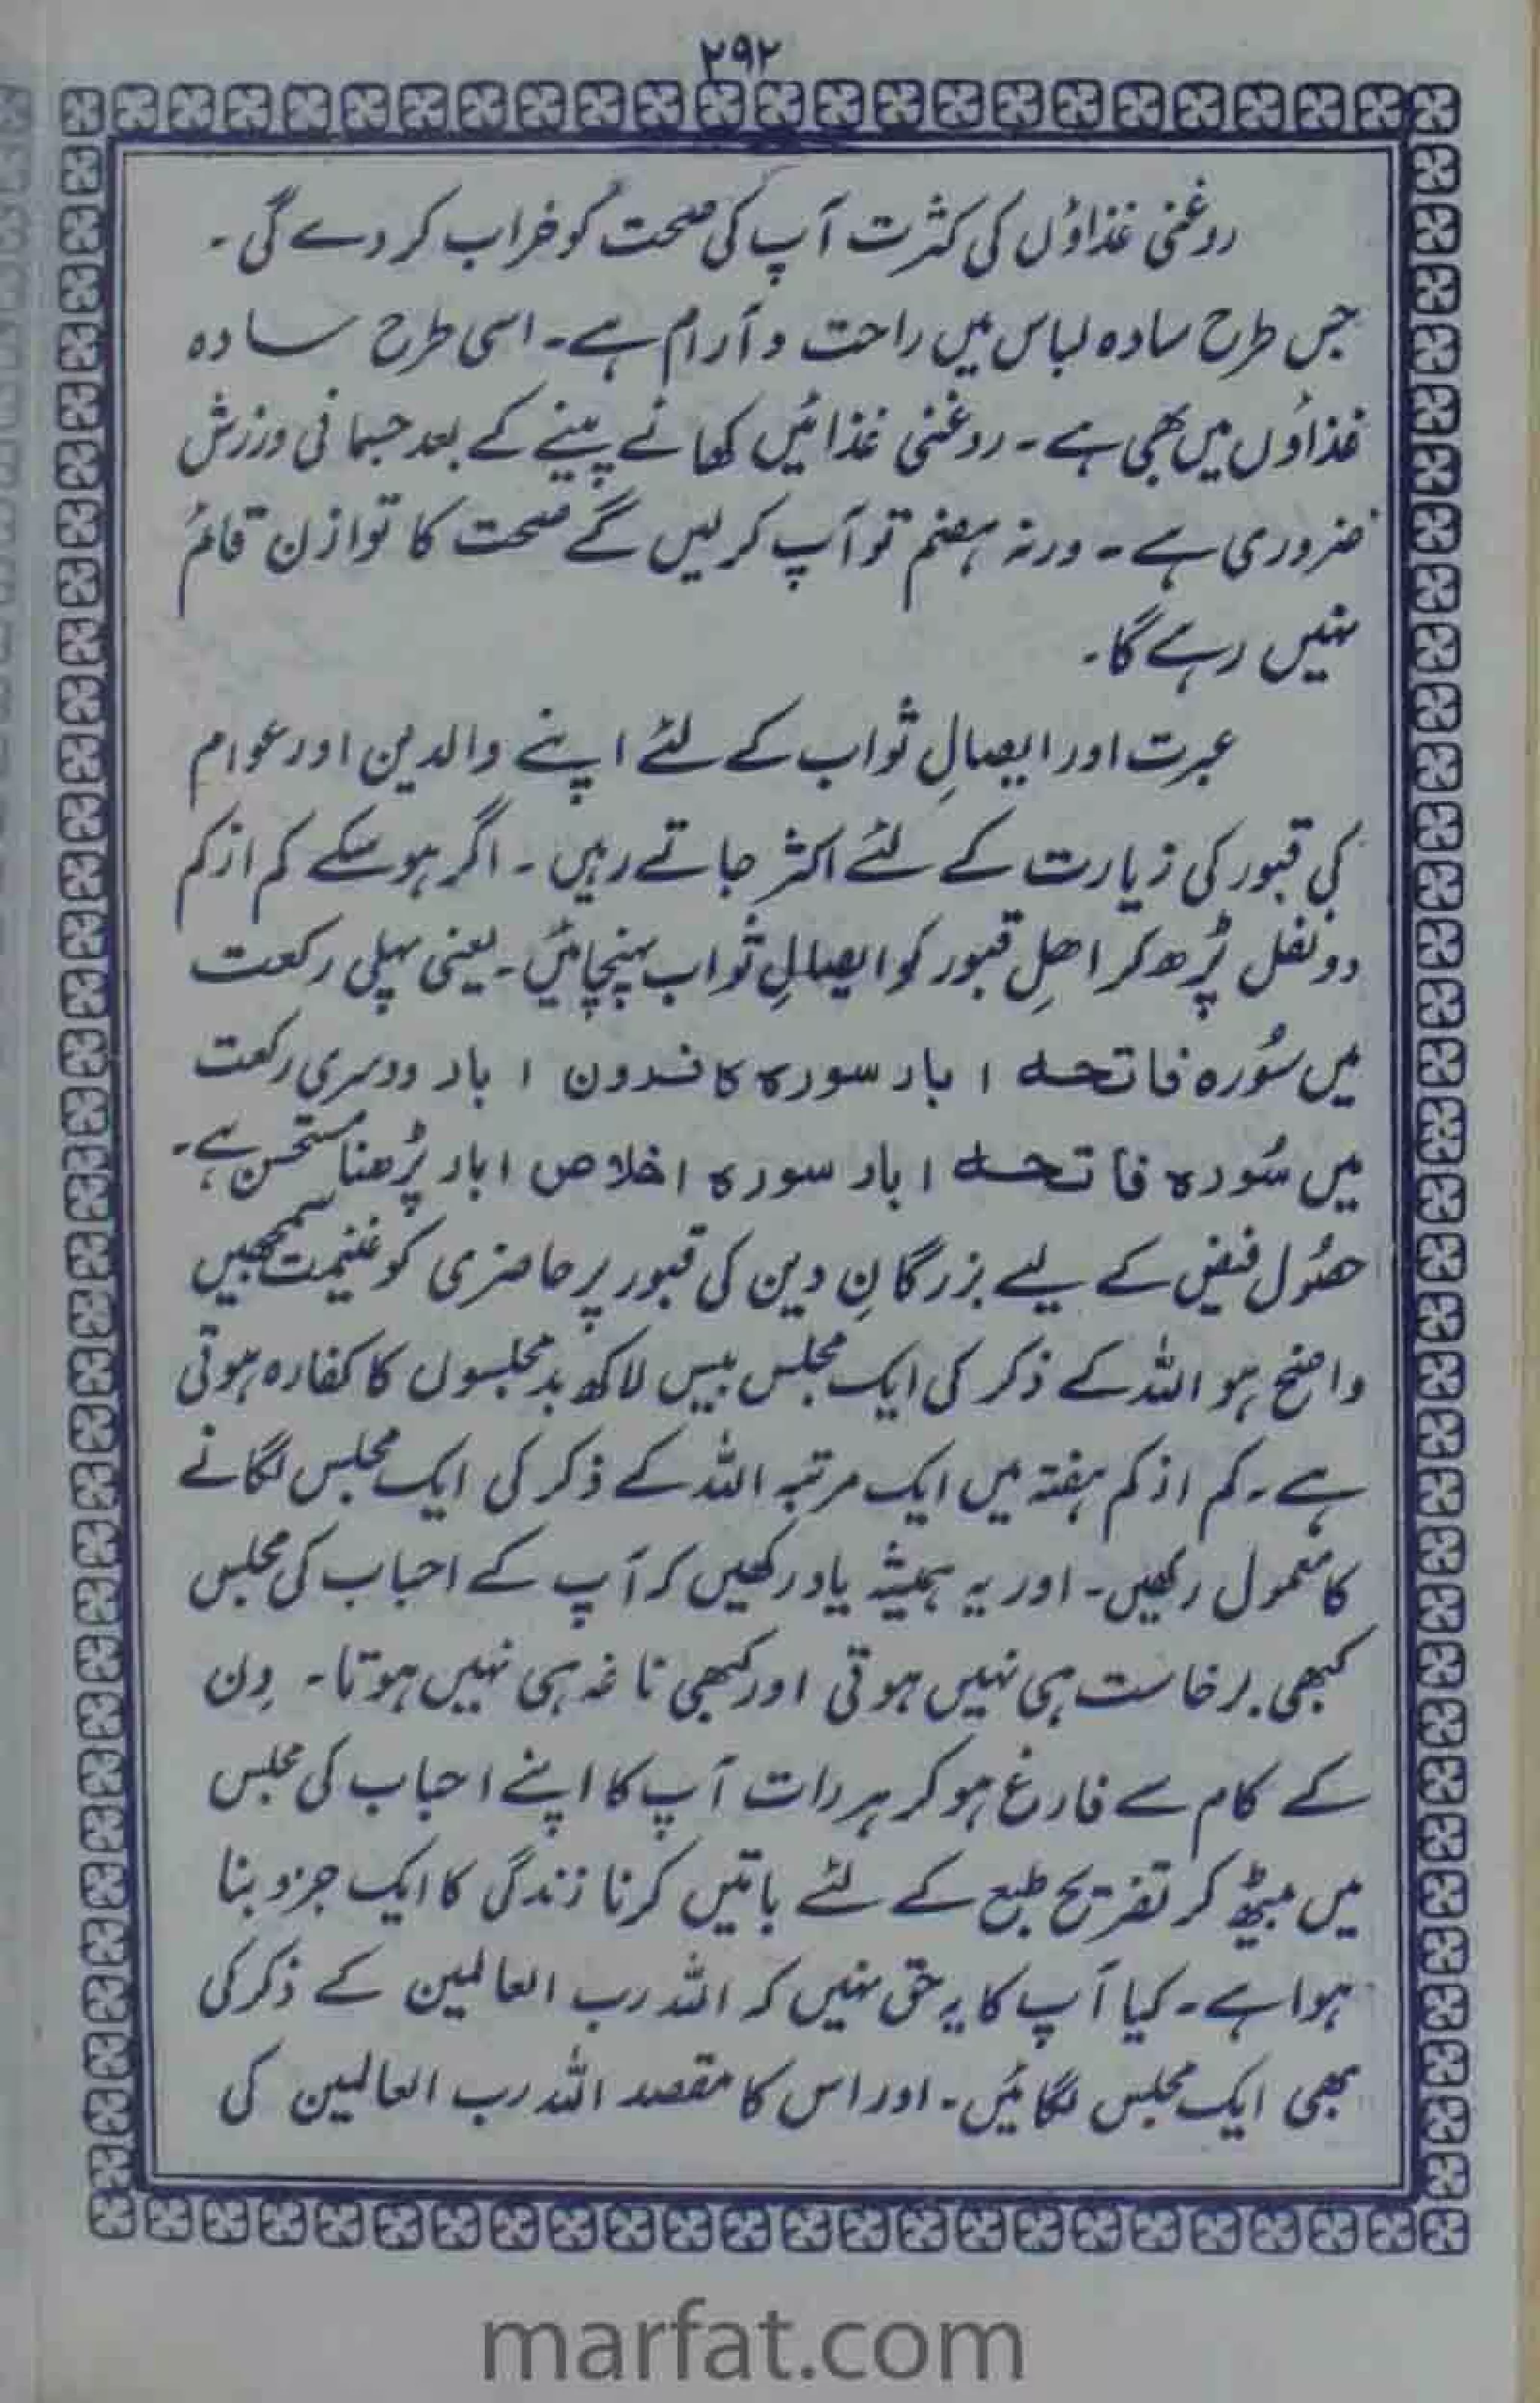 ۲۹۲
روغنی غذاؤں کی کثرت آپ کی صحت کو خراب کر دے گی ۔
جس طرح سادہ لباس میں راحت و آرام ہے۔ اسی طرح سادہ
غذاؤں میں بھی ہے ۔ روغنی غذائیں کھانے پینے کے بعد جسمانی ورزش
ضروری ہے ۔ ورنہ ہضم تو آپ کر لیں گے صحت کا توازن قائم
نہیں رہے گا۔
عبرت اور ایصالِ ثواب کے لئے اپنے والدین اور عوام
کی قبور کی زیارت کے لئے اکثر جاتے رہیں ۔ اگر ہو سکے کم از کم
دو نفل پڑھ کر اھلِ قبور کو ایصالِ ثواب پہنچائیں ۔ یعنی پہلی رکعت
میں سُورہ فاتحہ ۱ بار سورہ کافرون ۱ بار دوسری رکعت
میں سُورہ فاتحہ ۱ بار سورہ اخلاص ۱ بار پڑھنا مستحسن ہے۔
حصُول فیض کے لیے بزرگانِ دین کی قبور پر حاضری کو غنیمت سمجھیں
واضح ہو اللہ کے ذکر کی ایک مجلس بیس لاکھ بد مجلسوں کا کفارہ ہوتی
ہے۔ کم از کم ہفتہ میں ایک مرتبہ اللہ کے ذکر کی ایک مجلس لگانے
کا معمول رکھیں۔ اور یہ ہمیشہ یاد رکھیں کہ آپ کے احباب کی مجلس
کبھی برخاست ہی نہیں ہوتی اور کبھی ناغہ ہی نہیں ہوتا۔ دِن
کے کام سے فارغ ہو کر ہر رات آپ کا اپنے احباب کی مجلس
میں بیٹھ کر تفریح طبع کے لئے باتیں کرنا زندگی کا ایک جزو بنا
ہوا ہے ۔ کیا آپ کا یہ حق نہیں کہ اللہ رب العالمین کے ذکر کی
بھی ایک مجلس لگائیں ۔ اور اس کا مقصد اللہ رب العالمین کی
marfat.com